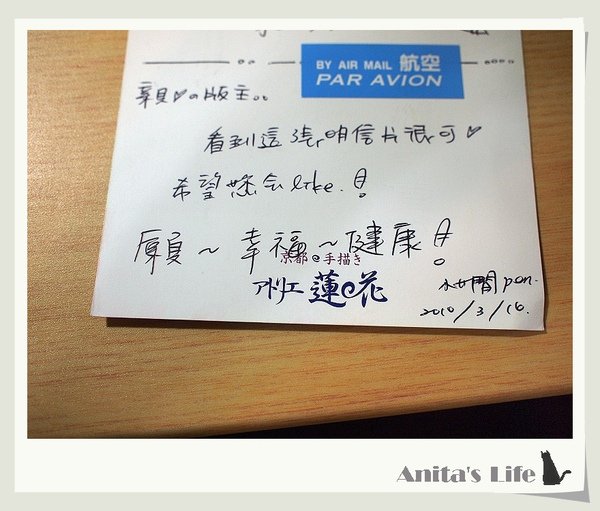 BY AIR MAIL 航空
PAR AVION
親♥の版主。。
看到這張明信片很可♥
希望您会like.!
願～幸福～健康!
京都@手描き
アトリエ 蓮@花
pon.
2010/3/16.
Anita's Life